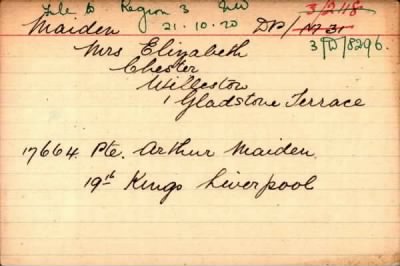 File D Region 3 NW 3/248
Maiden 21.10.20 DP/ M 31
3/D/8296.
Mrs Elizabeth
Chester
Willeston
1 Gladstone Terrace
17664 Pte. Arthur Maiden.
19th Kings Liverpool